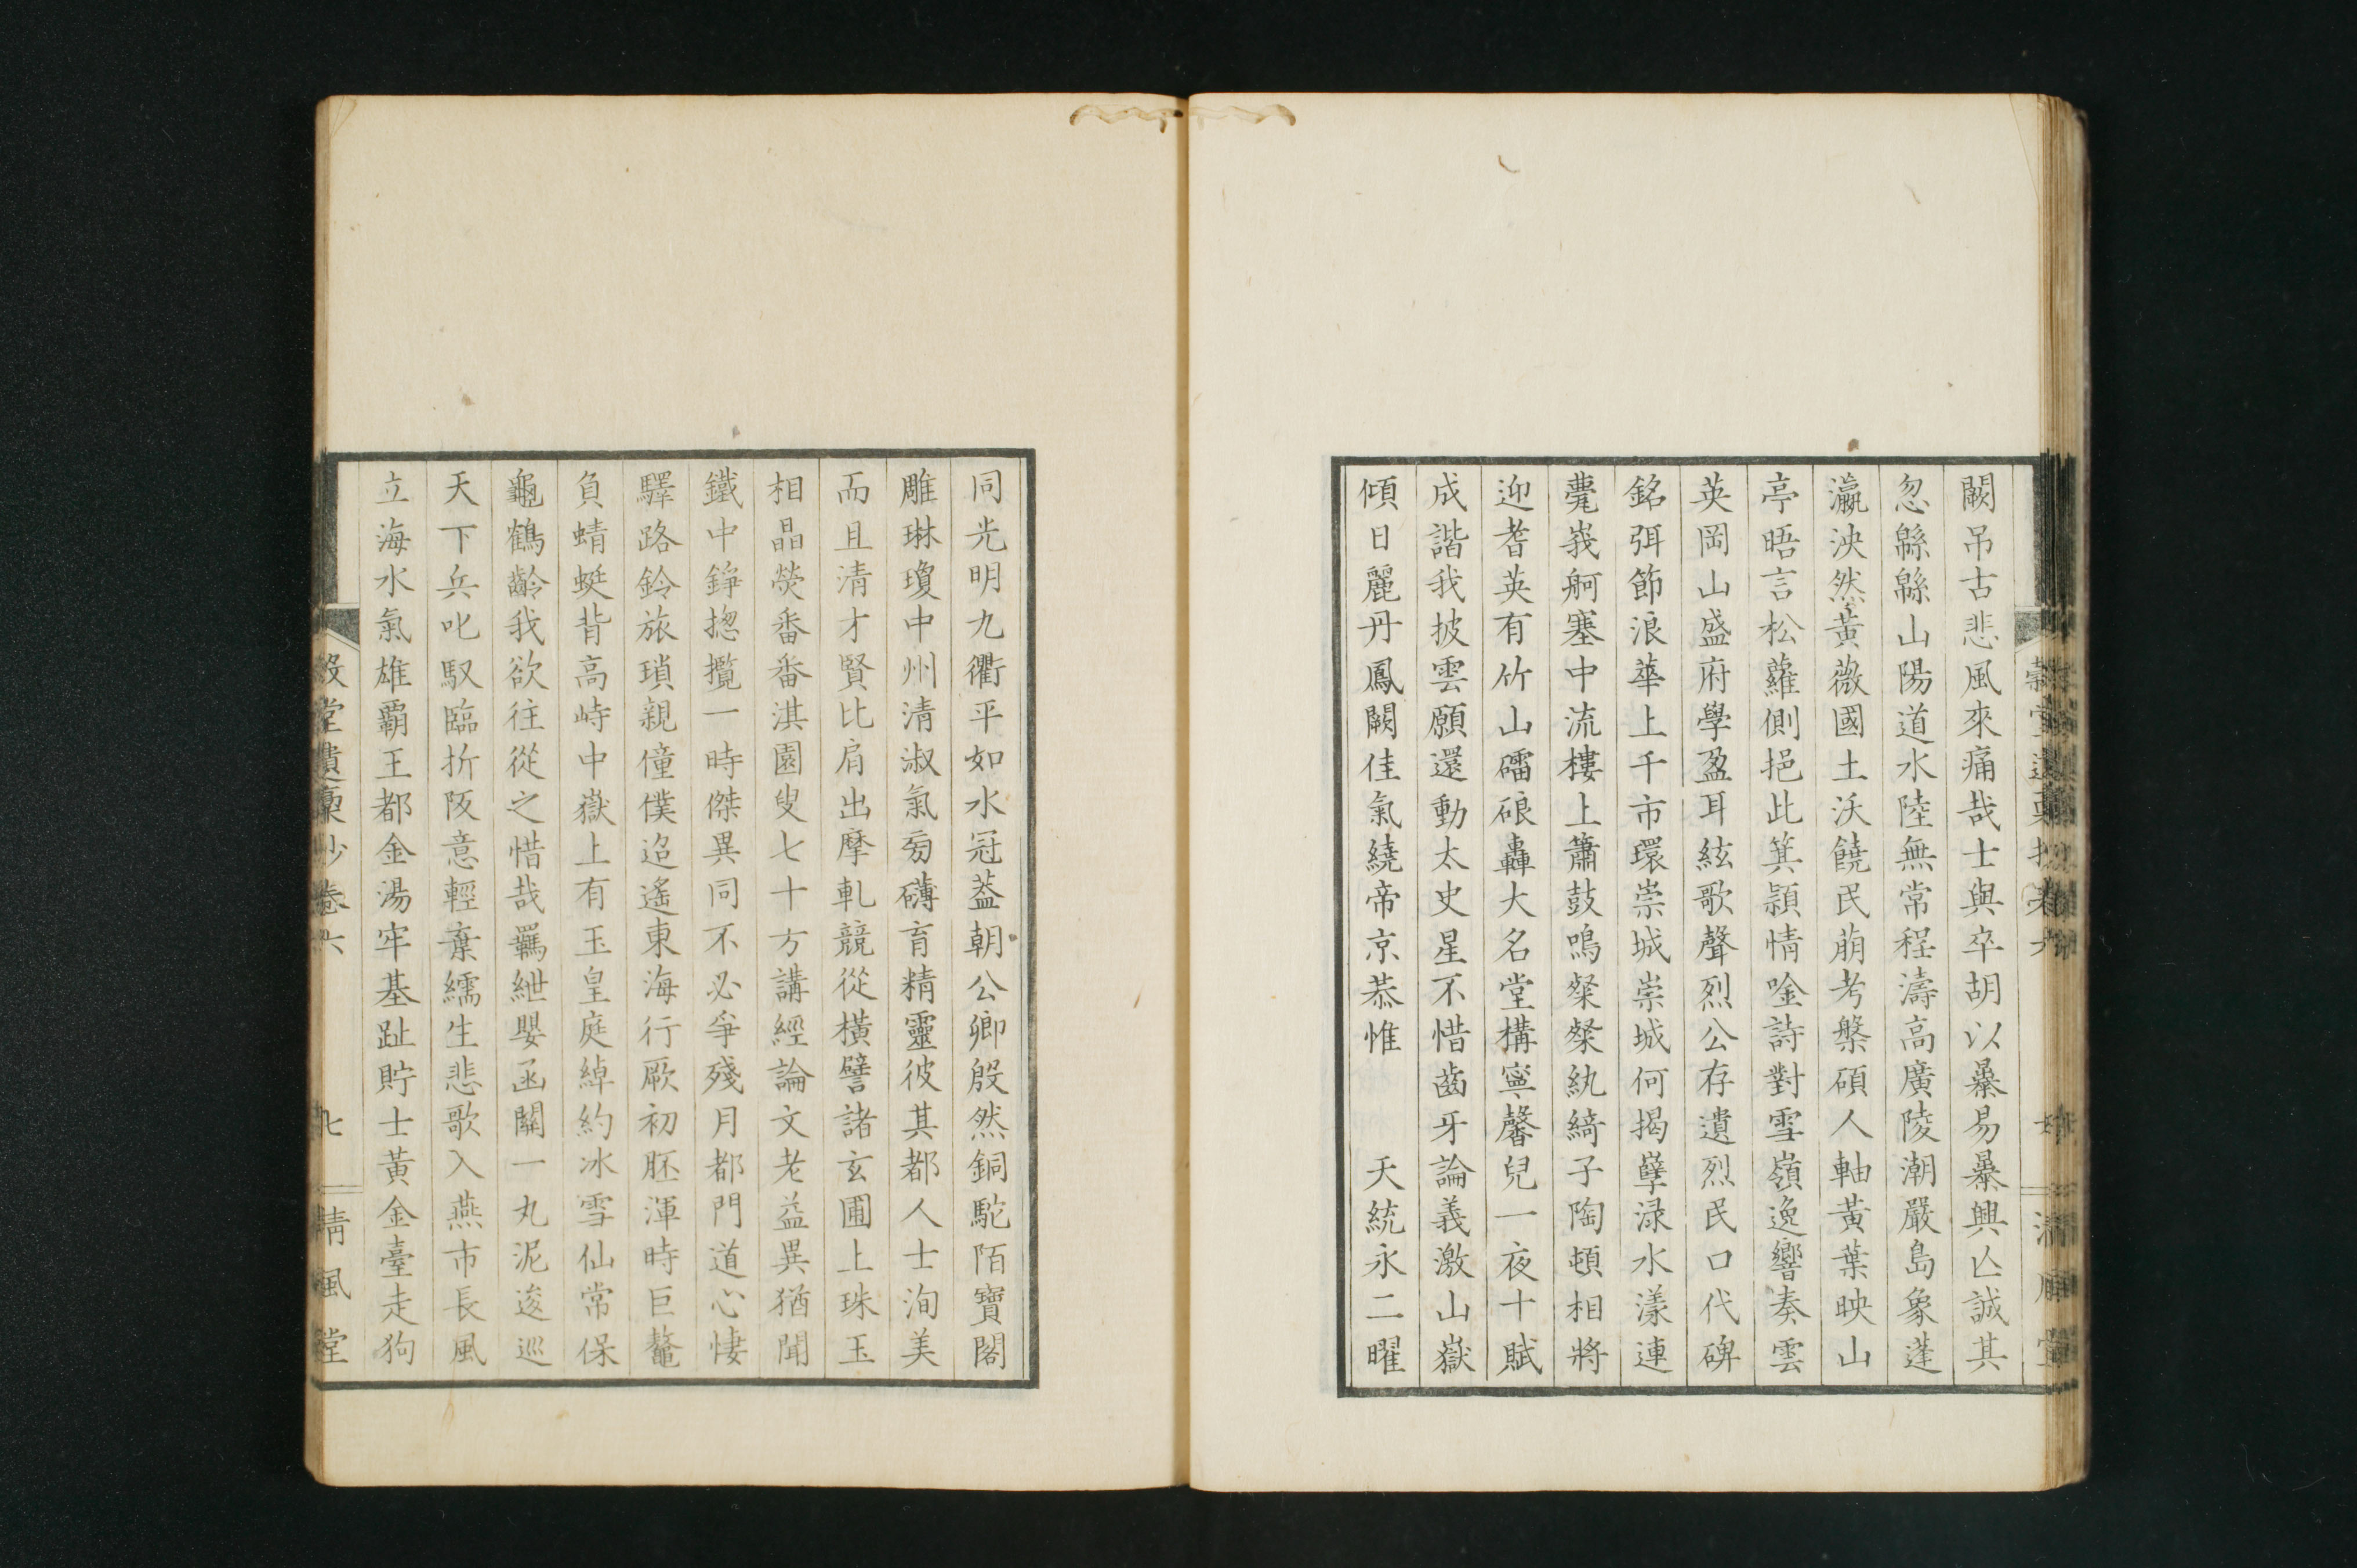 闕吊古悲風來痛哉士與卒胡以暴易暴興亾誠其
忽緜緜山陽道水陸無常程濤高廣陵潮嚴島象蓬
瀛泱然黃薇國土沃饒民萠考槃碩人軸黃葉映山
亭晤言松蘿側挹此箕潁情唫詩對雪嶺逸響奏雲
英岡山盛府學盈耳絃歌聲烈公存遺烈民口代碑
銘弭節浪華上千市環崇城崇城何揭孼渌水漾連
甍峩舸塞中流樓上簫鼓鳴粲粲紈綺子陶頓相將
迎耆英有竹山礌硠轟大名堂構寧馨兒一夜十賦
成諧我披雲願還動太史星不惜齒牙論義激山嶽
傾日麗丹鳳闕佳氣繞帝京恭惟 天統永二曜
同光明九衢平如水冠葢朝公卿殷然銅駝陌寶閣
雕琳瓊中州清淑氣旁礴育精靈彼其都人士洵美
而且清才賢比肩出摩軋競從橫譬諸玄圃上珠玉
相晶熒番番淇園叟七十方講經論文老益異猶聞
鐵中錚揔攬一時傑異同不必爭殘月都門道心悽
驛路鈴旅瑣親僮僕迢遙東海行厥初胚渾時巨鼇
負蜻蜓背高峙中嶽上有玉皇庭綽約冰雪仙常保
龜鶴齡我欲往從之惜哉羈紲嬰函關一丸泥逡巡
天下兵叱馭臨折阪意輕棄繻生悲歌入燕市長風
立海水氣雄霸王都金湯牢基趾貯士黃金臺走狗
堂遺稾抄卷六 七 清風堂